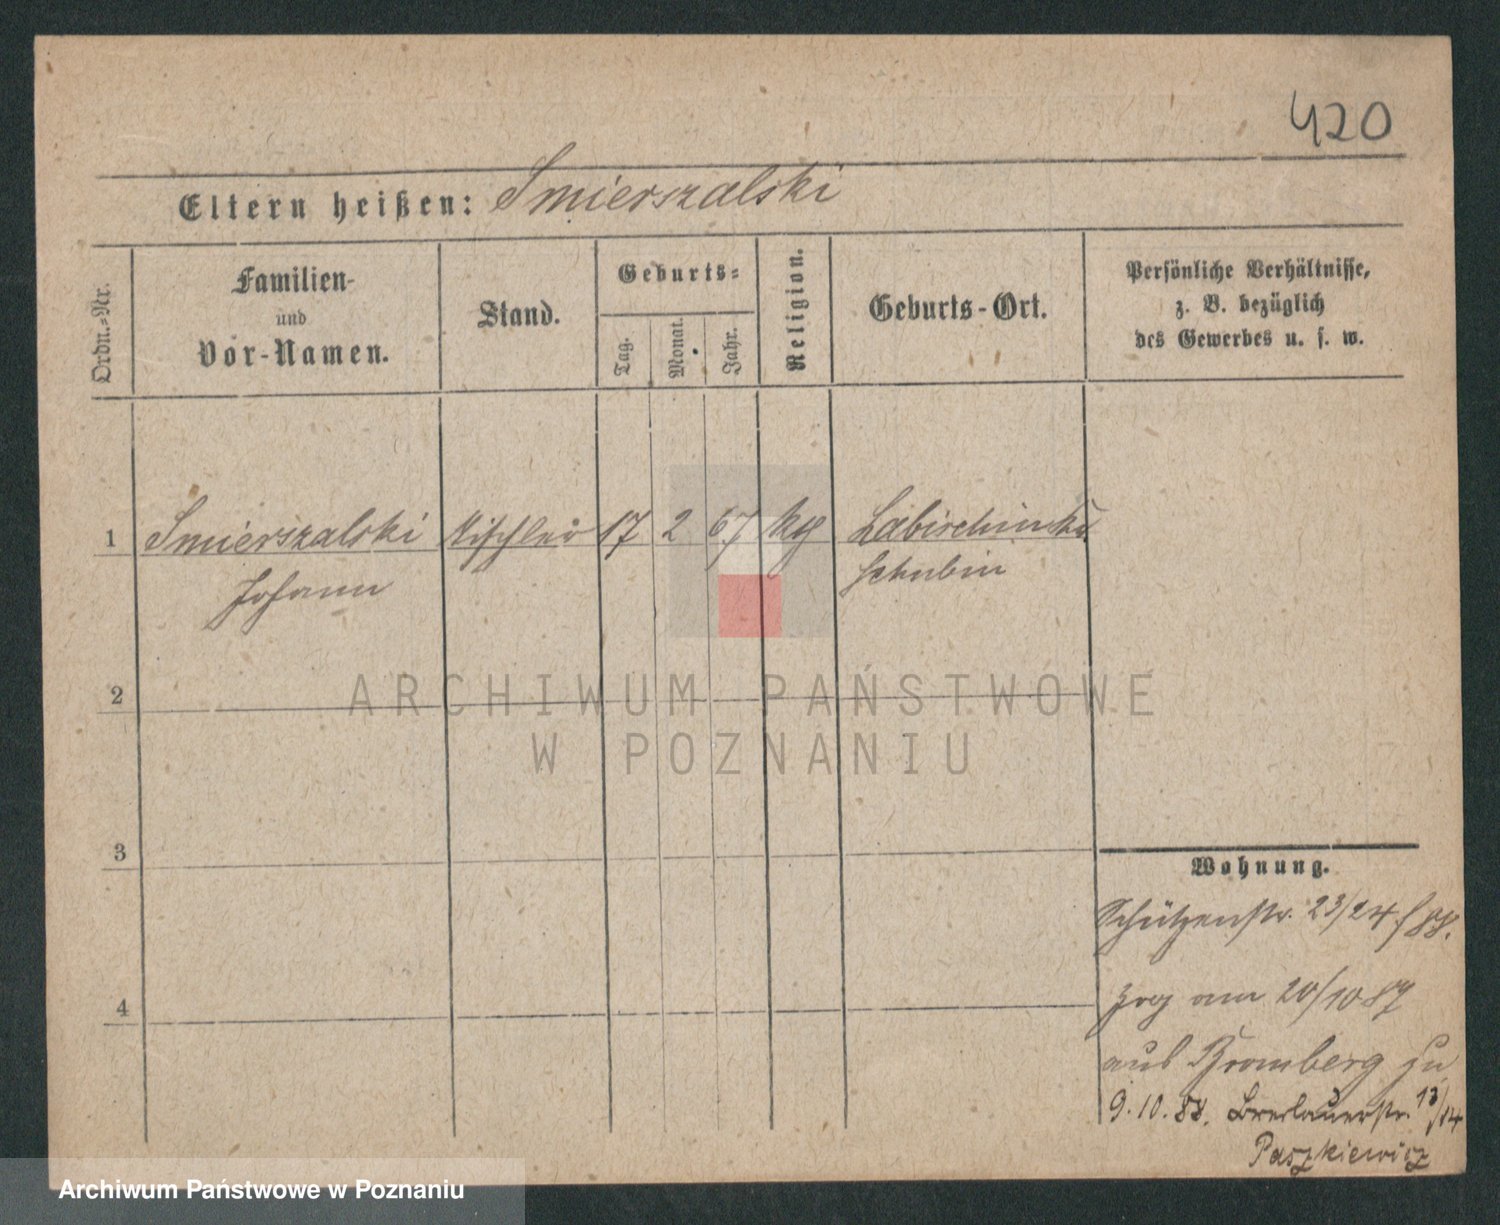 420
Eltern heißen: Smierszalski
Ordn.-Nr.
Familien-
und
Vor-Namen.
Stand.
Geburts-
Tag.
Monat.
Jahr.
Religion.
Geburts-Ort.
Persönliche Verhältnisse,
z. B. bezüglich
des Gewerbes u. s. w.
1 Smierszalski Tischler 17 2 67 Labischin
Johann Schubin
2
ARCHIWUM PAŃSTWOWE
W POZNANIU
3
4
Wohnung.
Schützenstr. 23/24 88.
Zog am 20/10 87
aus Bromberg zu
9.10.88. Breslauerstr. 13/14
Paszkiewicz
Archiwum Państwowe w Poznaniu